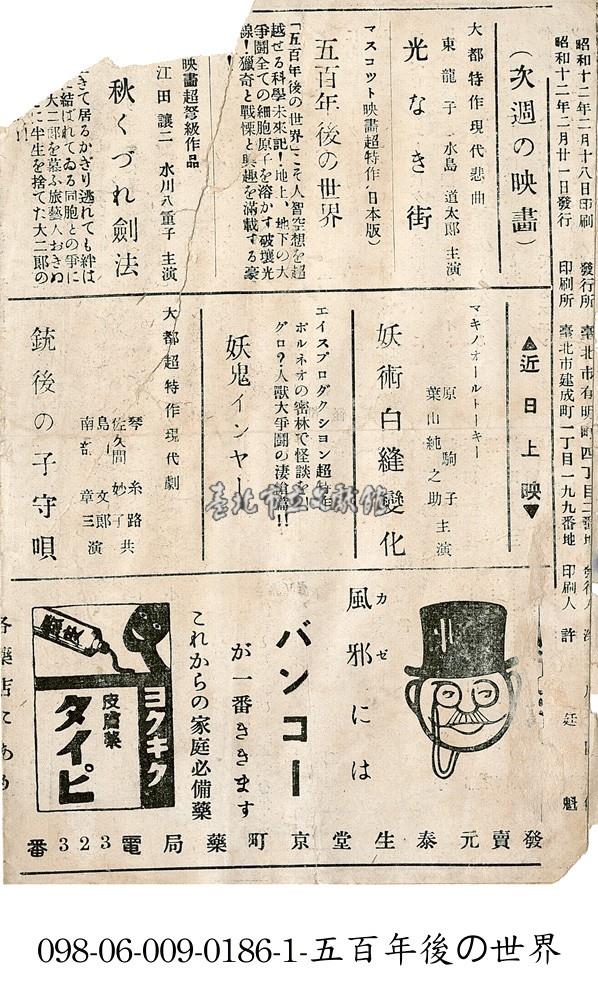 昭和十二年二月十八日印刷
昭和十二年二月廿一日發行
發行所 臺北市有明町四丁目二番地
印刷所 臺北市建成町一丁目一九九番地 印刷人 許 廷 魁
(次週の映畫)
大都特作現代悲曲
東龍子・水島道太郎主演
光なき街
マスコット映畫超特作(日本版)
五百年後の世界
「五百年後の世界」こそ人智空想を超
越せる科學未來記!地上、地下の大
爭鬪全ての細胞原子を溶かす破壞光
線!獵奇と戰慄と興趣を滿載する豪
映畫超弩級作品
江田讓二・水川八重子主演
秋くづれ劍法
きて居るかぎり逃れても絆は
に結ばれてゐる同胞との爭に
大二郎を慕ふ旅藝人おきぬ
に半生を捨てた大二郎の
!!
▲近日上映▼
マキノオールトーキー
原駒子
葉山純之助
主演
妖術白縫變化
エイスプロダクション超特作
ボルネオの密林で怪談を
グロ?人獸大爭鬪の凄愴篇!!
妖鬼インヤー
大都超特作現代劇
琴糸路
佐久間妙子
島文郎
南章三
共演
銃後の子守唄
臺北市立文獻館
風邪には
カゼ
バンコー
が一番きゝます
これからの家庭必備藥
ヨクキク
皮膚藥
タイピ
各藥店にあり
發賣元泰生堂京町藥局電323番
098-06-009-0186-1-五百年後の世界